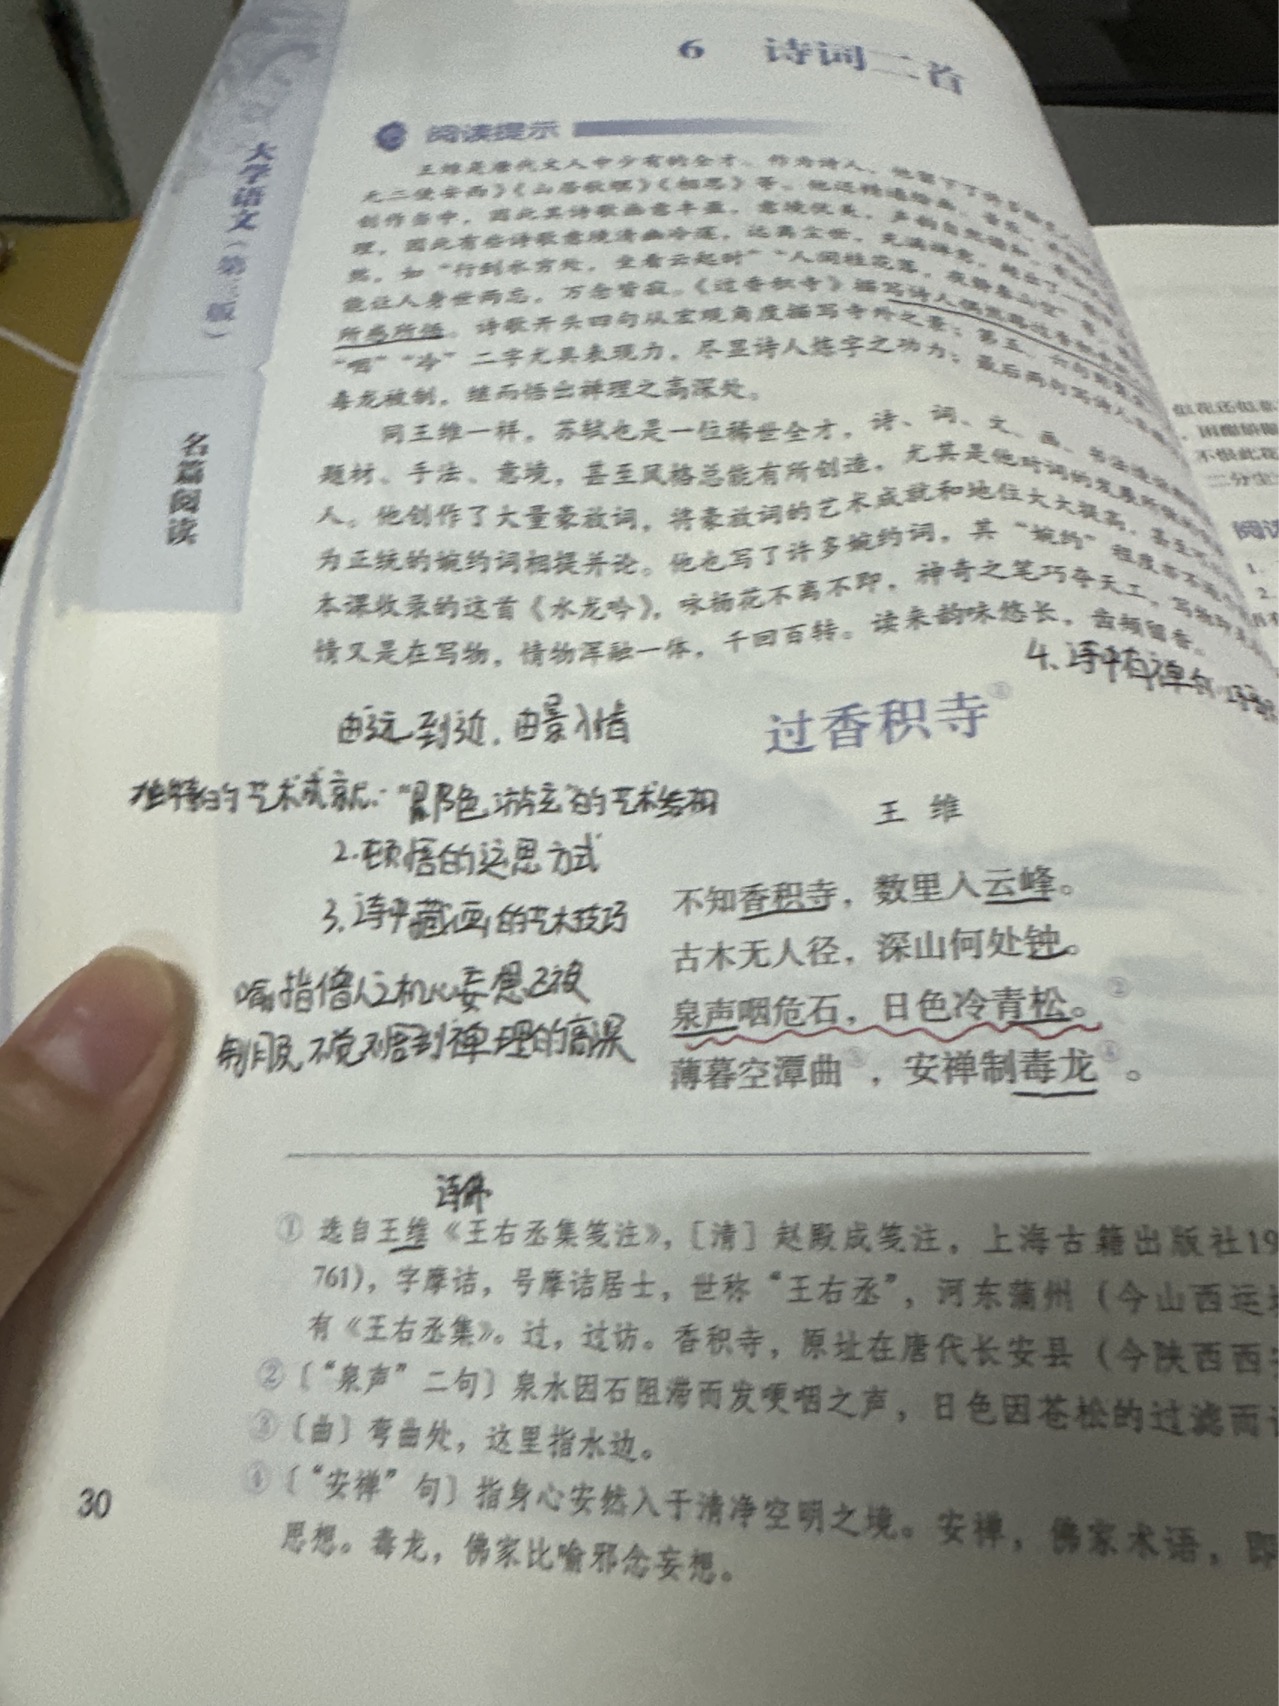 6 诗词二首
大学语文(第三版)
名篇阅读
阅读提示
王维是唐代文人中少有的全才。作为诗人,他留下了许多
元二使安西》《山居秋暝》《相思》等。他还精通绘画、音乐
创作当中,因此其诗歌画意丰盈,意境优美,声韵自然谐和
理,因此有些诗歌意境清幽冷寂,远离尘世,充满禅意
然,如“行到水穷处,坐看云起时”“人闲桂花落,夜静春山空”等
能让人身世两忘,万念皆寂。《过香积寺》描写诗人
所感所悟。诗歌开头四句从宏观角度描写寺外之景;第五、六句
“咽”“冷”二字尤具表现力,尽显诗人炼字之功力;最后两句写诗人
毒龙被制,继而悟出禅理之高深处。
同王维一样,苏轼也是一位稀世全才,诗、词、文、画、书法
题材、手法、意境,甚至风格总能有所创造,尤其是他对词的发展所做的
人。他创作了大量豪放词,将豪放词的艺术成就和地位大大提高,甚至
为正统的婉约词相提并论。他也写了许多婉约词,其“婉约”程度
本课收录的这首《水龙吟》,咏杨花不离不即,神奇之笔巧夺天工,写物
情又是在写物,情物浑融一体,千回百转。读来韵味悠长,齿颊留香。
4.诗中有禅
由远到近,由景入情
过香积寺①
独特的艺术成就:“即色游玄”的艺术结构
王 维
2.顿悟的运思方式
不知香积寺,数里入云峰。
3.诗中藏画的艺术技巧
古木无人径,深山何处钟。
喻指僧人之机心妄想已被
泉声咽危石,日色冷青松。②
制服,不觉又悟到禅理的高深
薄暮空潭曲③,安禅制毒龙④。
诗佛
① 选自王维《王右丞集笺注》,[清]赵殿成笺注,上海古籍出版社19
761),字摩诘,号摩诘居士,世称“王右丞”,河东蒲州(今山西运
有《王右丞集》。过,过访。香积寺,原址在唐代长安县(今陕西西
② 〔“泉声”二句〕泉水因石阻滞而发哽咽之声,日色因苍松的过滤而
③〔曲〕弯曲处,这里指水边。
④〔“安禅”句〕指身心安然入于清净空明之境。安禅,佛家术语,即
思想。毒龙,佛家比喻邪念妄想。
30